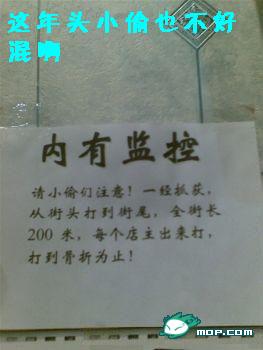 这年头小偷也不好
混啊
内有监控
请小偷们注意！一经抓获，
从街头打到街尾，全街长
200 米，每个店主出来打，
打到骨折为止！
MOP.com